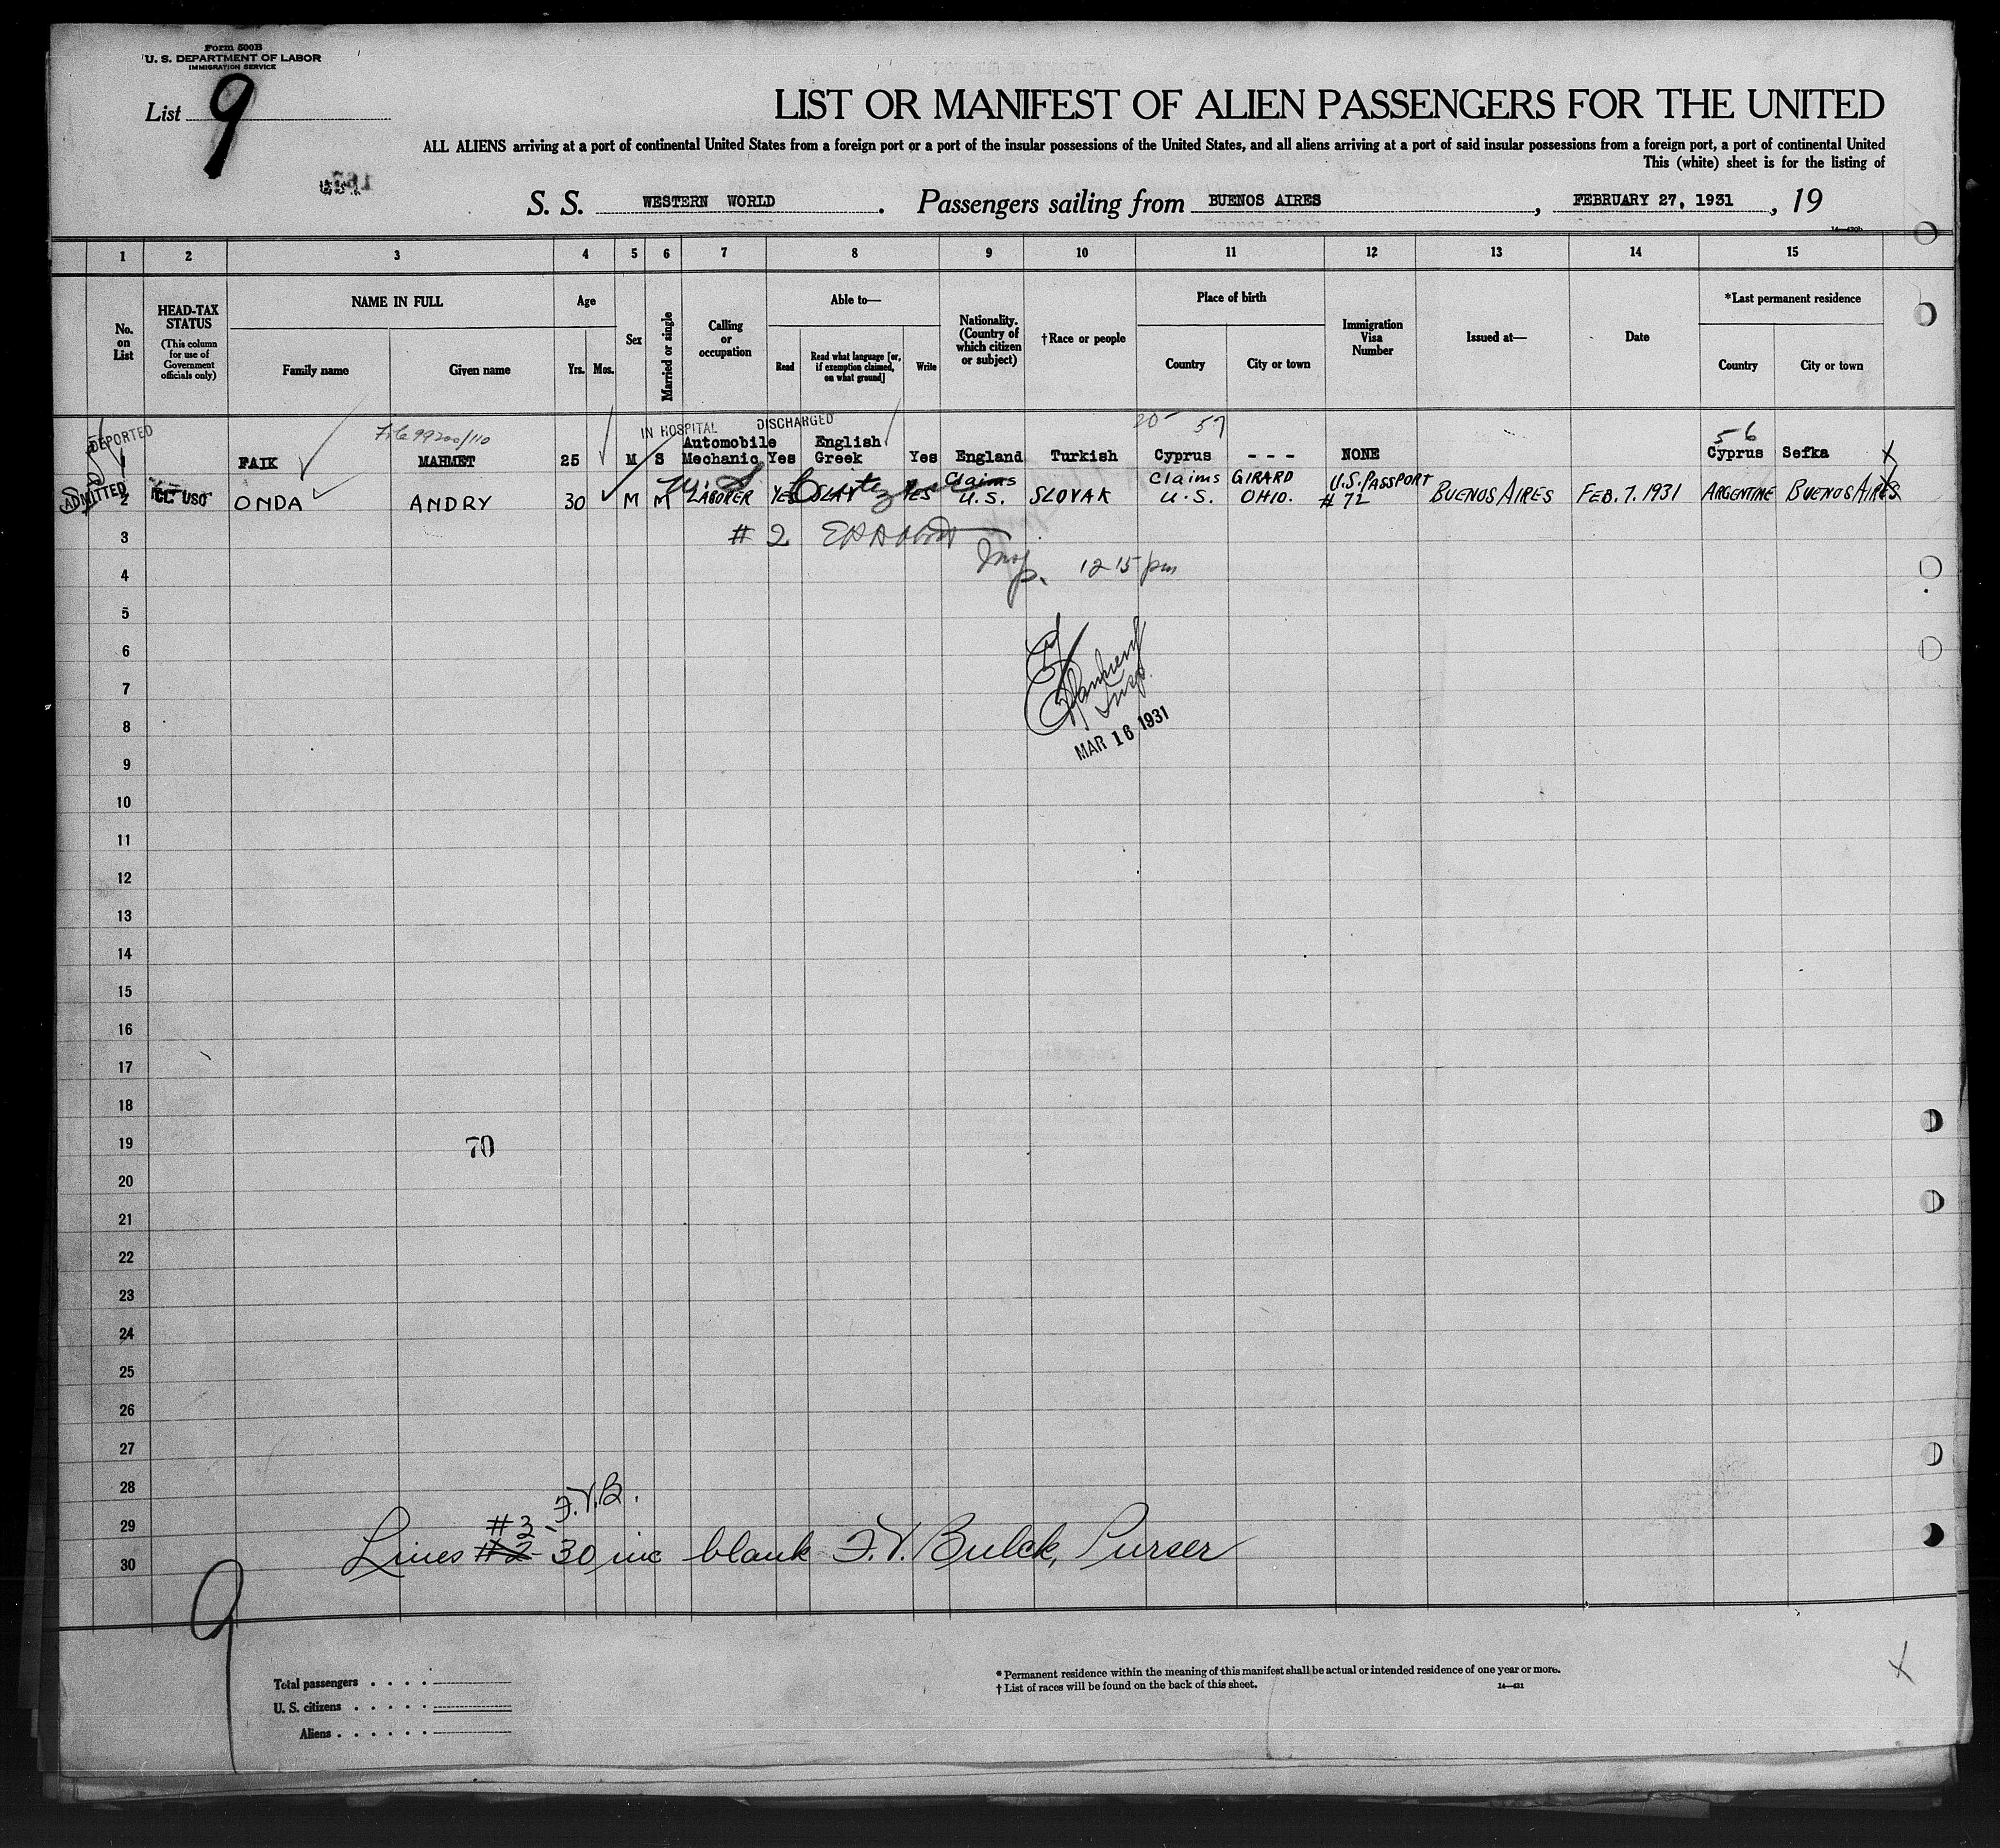 Form 500B
U. S. DEPARTMENT OF LABOR
IMMIGRATION SERVICE
List 9
LIST OR MANIFEST OF ALIEN PASSENGERS FOR THE UNITED
ALL ALIENS arriving at a port of continental United States from a foreign port or a port of the insular possessions of the United States, and all aliens arriving at a port of said insular possessions from a foreign port, a port of continental United
This (white) sheet is for the listing of
S. S. WESTERN WORLD. Passengers sailing from BUENOS AIRES, FEBRUARY 27, 1931, 19
1 2 3 4 5 6 7 8 9 10 11 12 13 14 15
No. on List
HEAD-TAX STATUS
(This column for use of Government officials only)
NAME IN FULL
Family name Given name
Age
Yrs. Mos.
Sex
Married or single
Calling or occupation
Able to—
Read
Read what language [or, if exemption claimed, on what ground]
Write
Nationality. (Country of which citizen or subject)
†Race or people
Place of birth
Country City or town
Immigration Visa Number
Issued at—
Date
*Last permanent residence
Country City or town
DEPORTED
File 99200/110
IN HOSPITAL DISCHARGED
20 57
56
1 FAIK MAHMET 25 M S Automobile Mechanic Yes English Greek Yes England Turkish Cyprus - - - NONE Cyprus Sefka X
ADMITTED
2 USO ONDA ANDRY 30 M M LABORER YES SLAV YES Claims U.S. SLOVAK Claims U.S. GIRARD OHIO. U.S. PASSPORT # 72 BUENOS AIRES FEB. 7. 1931 ARGENTINE BUENOS AIRES
U.S. Citizen
3 # 2
Insp.
4 12 15 pm
5
6
7
Insp.
8
MAR 16 1931
9
10
11
12
13
14
15
16
17
18
19 70
20
21
22
23
24
25
26
27
28 F.V.B.
29 #3-
30 Lines #2- 30 inc blank F.V. Bulck, Purser
9
Total passengers . . . .
U. S. citizens . . . . .
Aliens . . . . . .
* Permanent residence within the meaning of this manifest shall be actual or intended residence of one year or more.
† List of races will be found on the back of this sheet.
14—431
X